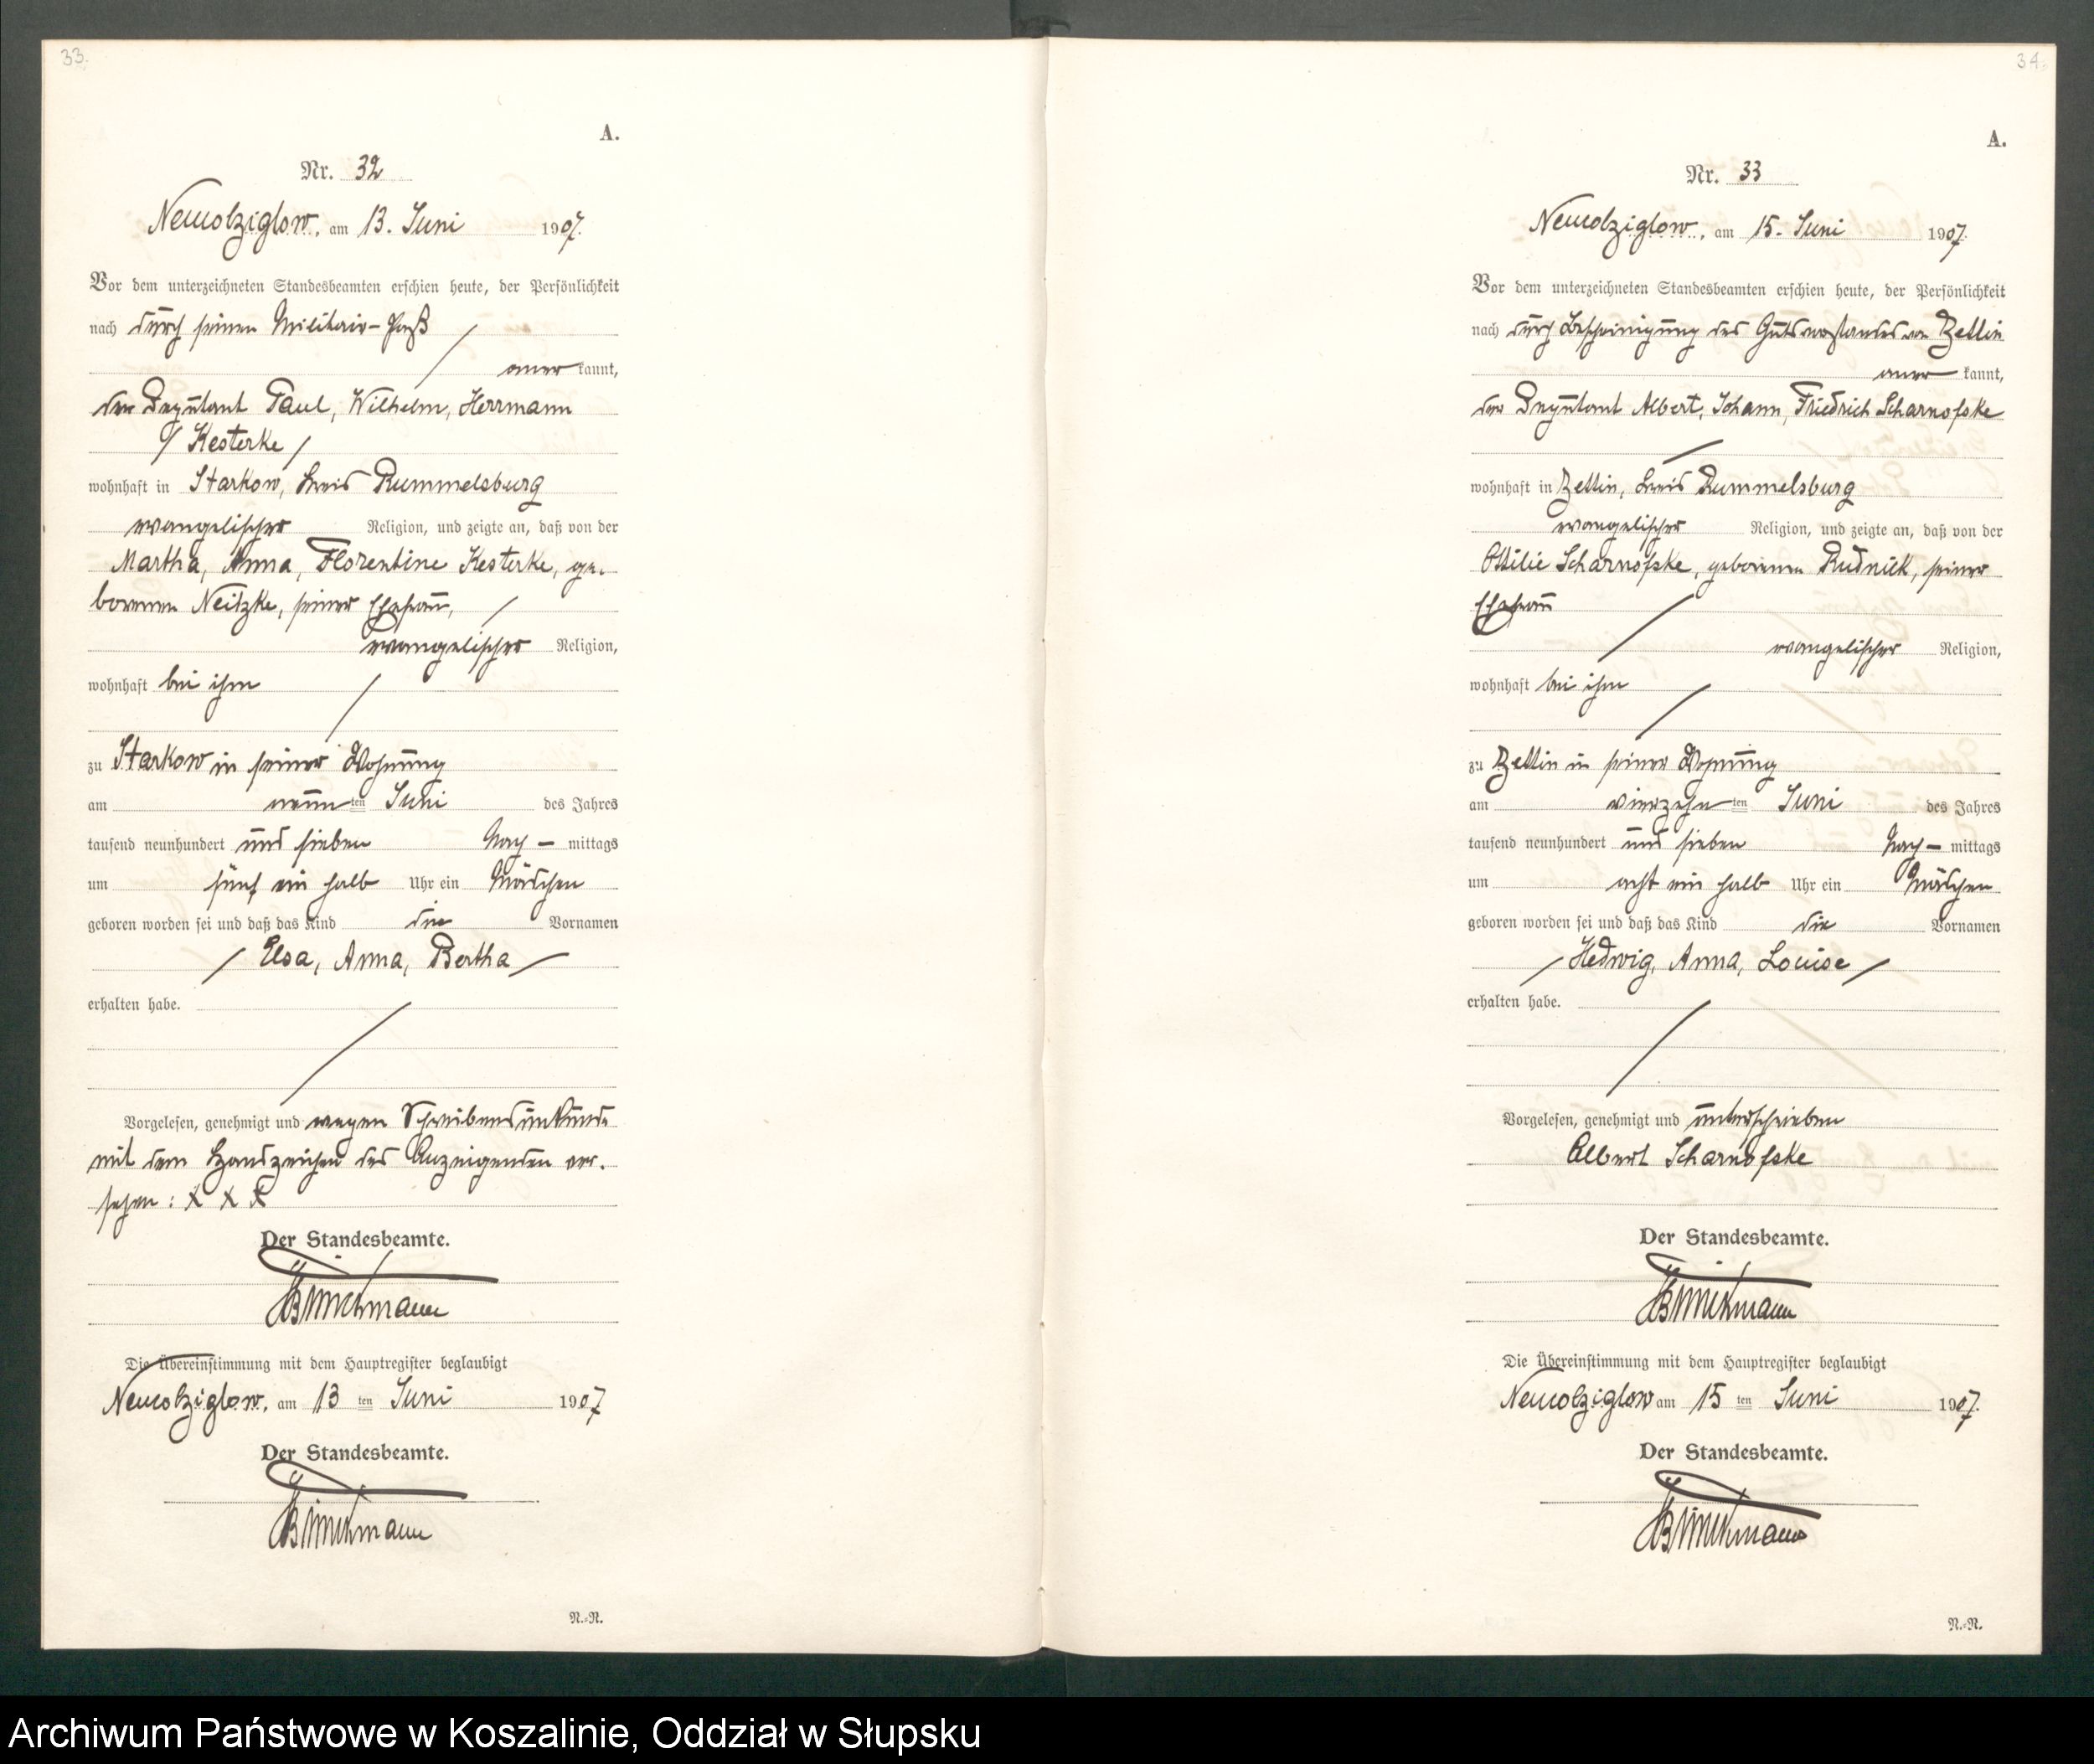 33.
A.
Nr. 32
Neuwolziglow, am 13. Juni 1907.
Vor dem unterzeichneten Standesbeamten erschien heute, der Persönlichkeit
nach durch seinen Militair-Paß
anerkannt,
der Deputant Paul, Wilhelm, Herrmann
/ Kesterke /
wohnhaft in Starkow, Kreis Rummelsburg
evangelischer Religion, und zeigte an, daß von der
Martha, Anna, Florentine Kesterke, ge-
borenen Neitzke, seiner Ehefrau,
evangelischer Religion,
wohnhaft bei ihm
zu Starkow in seiner Wohnung
am neunten Juni des Jahres
tausend neunhundert und sieben Nach-mittags
um fünf ein halb Uhr ein Mädchen
geboren worden sei und daß das Kind die Vornamen
/ Elsa, Anna, Bertha /
erhalten habe.
Vorgelesen, genehmigt und wegen Schreibensunkunde
mit dem Handzeichen des Anzeigenden ver-
sehen: X X X
Der Standesbeamte.
Die Übereinstimmung mit dem Hauptregister beglaubigt
Neuwolziglow, am 13 ten Juni 1907
Der Standesbeamte.
N.-N.
34.
A.
Nr. 33
Neuwolziglow, am 15. Juni 1907.
Vor dem unterzeichneten Standesbeamten erschien heute, der Persönlichkeit
nach durch Bescheinigung des Gutsvorstandes von Zettin
anerkannt,
der Deputant Albert, Johann, Friedrich Scharnofske
wohnhaft in Zettin, Kreis Rummelsburg
evangelischer Religion, und zeigte an, daß von der
Ottilie Scharnofske, geborenen Rudnick, seiner
Ehefrau
evangelischer Religion,
wohnhaft bei ihm
zu Zettin in seiner Wohnung
am vierzehnten Juni des Jahres
tausend neunhundert und sieben Nach-mittags
um acht ein halb Uhr ein Mädchen
geboren worden sei und daß das Kind die Vornamen
/ Hedwig, Anna, Louise /
erhalten habe.
Vorgelesen, genehmigt und unterschrieben
Albert Scharnofske
Der Standesbeamte.
Die Übereinstimmung mit dem Hauptregister beglaubigt
Neuwolziglow am 15 ten Juni 1907.
Der Standesbeamte.
N.-N.
Archiwum Państwowe w Koszalinie, Oddział w Słupsku